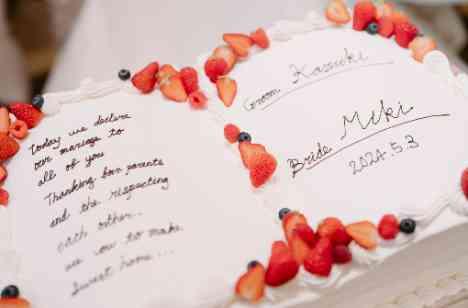 Today we declare
our marriage to
all of you
Thanking for parents
and the respecting
each other...
we vow to make
Sweet home...
Groom Kazuki
Bride Miki
2024.5.3